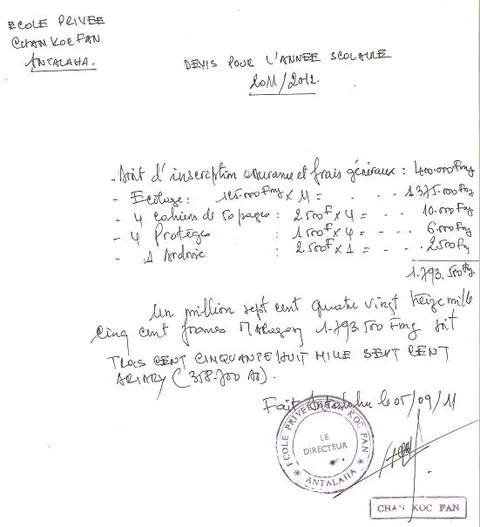 ECOLE PRIVEE
CHAN KOC FAN
ANTALAHA.
DEVIS POUR L'ANNEE SCOLAIRE
2011/2012.
- Droit d'inscription assurance et frais généraux : 400.000 Fmg
- Ecolage : 125.000 Fmg x 11 = . . . 1.375.000 Fmg
- 4 cahiers de 50 pages : 2500 F x 4 = . . . 10.000 Fmg
- 4 Protèges : 1500 F x 4 = . . . 6.000 Fmg
- 1 Ardoise : 2500 F x 1 = . . . 2500 Fmg
1.793.500 Fmg
Un million sept cent quatre vingt treize mille
cinq cent francs Malagasy 1.793 500 Fmg soit
TROIS CENT CINQUANTE HUIT MILLE SEPT CENT
ARIARY (358.700 Ar).
Fait Antalaha le 05/09/11
ECOLE PRIVEE CHAN KOC FAN
LE
DIRECTEUR
ANTALAHA
CHAN KOC FAN